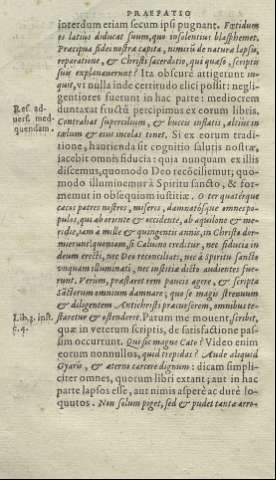 PRAEFATIO
interdum etiam secum ipsi pugnant. Fœtidum
os latius diducat suum, quo insolentius blasphemet.
Præcipua fidei nostræ capita, nimirũ de natura lapsu,
reparatione, & Christi sacerdotio, qui quæso, scriptis
suis explanauerunt? Ita obscurè attigerunt in-
quit, vt nulla inde certitudo elici possit: negli-
gentiores fuerunt in hac parte: mediocrem
duntaxat fructũ percipimus ex eorum libris.
Ref. ad-
vers. med-
quendam.
Contrahat supercilium, & buccis inflatis, altius in
cælum & eius incolas tonet. Si ex eorum tradi-
tione, haurienda sit cognitio salutis nostræ,
iacebit omnis fiducia: quia nunquam ex illis
discemus, quomodo Deo recõciliemur; quo-
modo illuminemur à Spiritu sancto, & for-
memur in obsequium iustitiæ. O ter quaterque
cæcos patres nostros, miseros, damnatósque omnes po-
pulos, qui ab oriente & occidente, ab aquilone & me-
ridie, iam à mille & quingentis annis, in Christo dor-
mierunt! quoniam, si Caluino creditur, nec fiducia in
deum erecti, nec Deo reconciliati, nec à Spiritu sancto
vnquam illuminati, nec iustitiæ dicto audientes fue-
runt. Verùm, præstaret tem paucis agere, & scripta
Sãctorum omnium damnare; quo se magis strenuum
& diligentem Antichristi præcursorem, omnibus te-
Lib. 3. inst.
c. 4.
staretur & ostenderet. Parum me mouent, scribit,
quæ in veterum scriptis, de satisfactione pas-
sim occurrunt. Quæ sic magne Cato? Video enim
eorum nonnullos, quid trepidas? Aude aliquid
Gyaris, & æterno carcere dignum: dicam simpli-
citer omnes, quorum libri extant; aut in hac
parte lapsos esse, aut nimis asperè ac durè lo-
quutos. Non solum piget, sed & pudet tantæ arro-